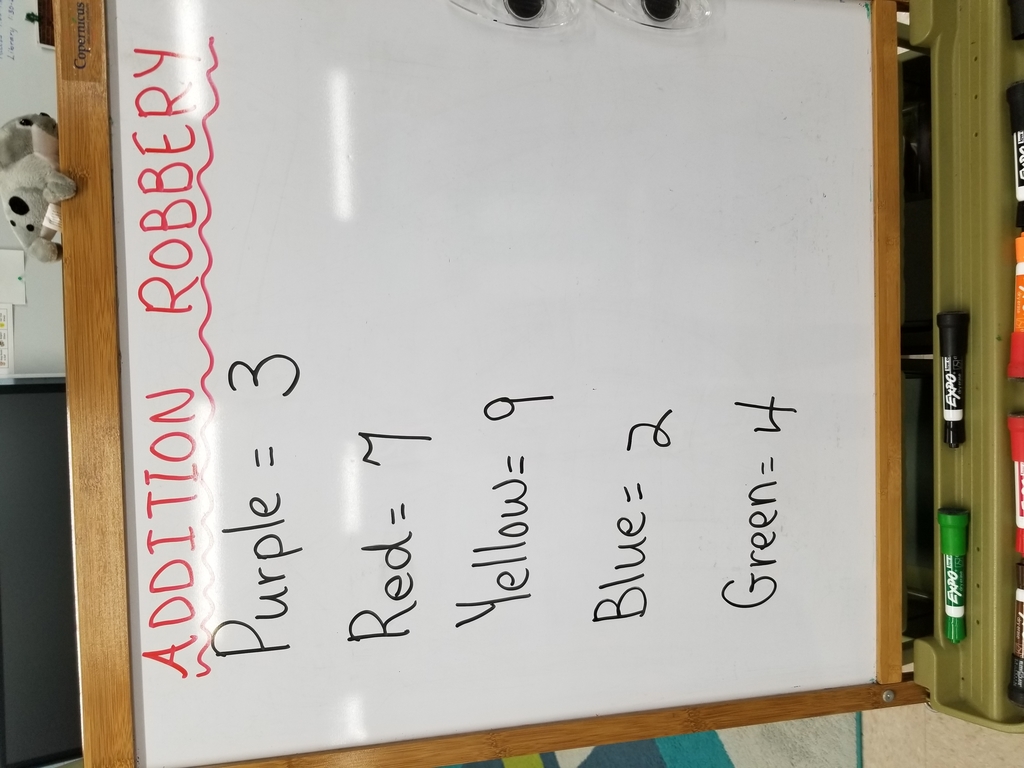 Copernicus
ADDITION ROBBERY
Purple = 3
Red = 7
Yellow = 9
Blue = 2
Green = 4
EXPO
EXPO